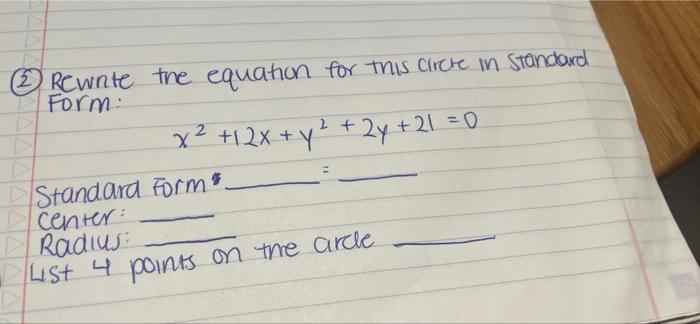 ② Rewrite the equation for this circle in standard
Form:
x² +12x + y² + 2y + 21 = 0
Standard Form: ______ = ______
center: ______
Radius: ______
List 4 points on the circle ______